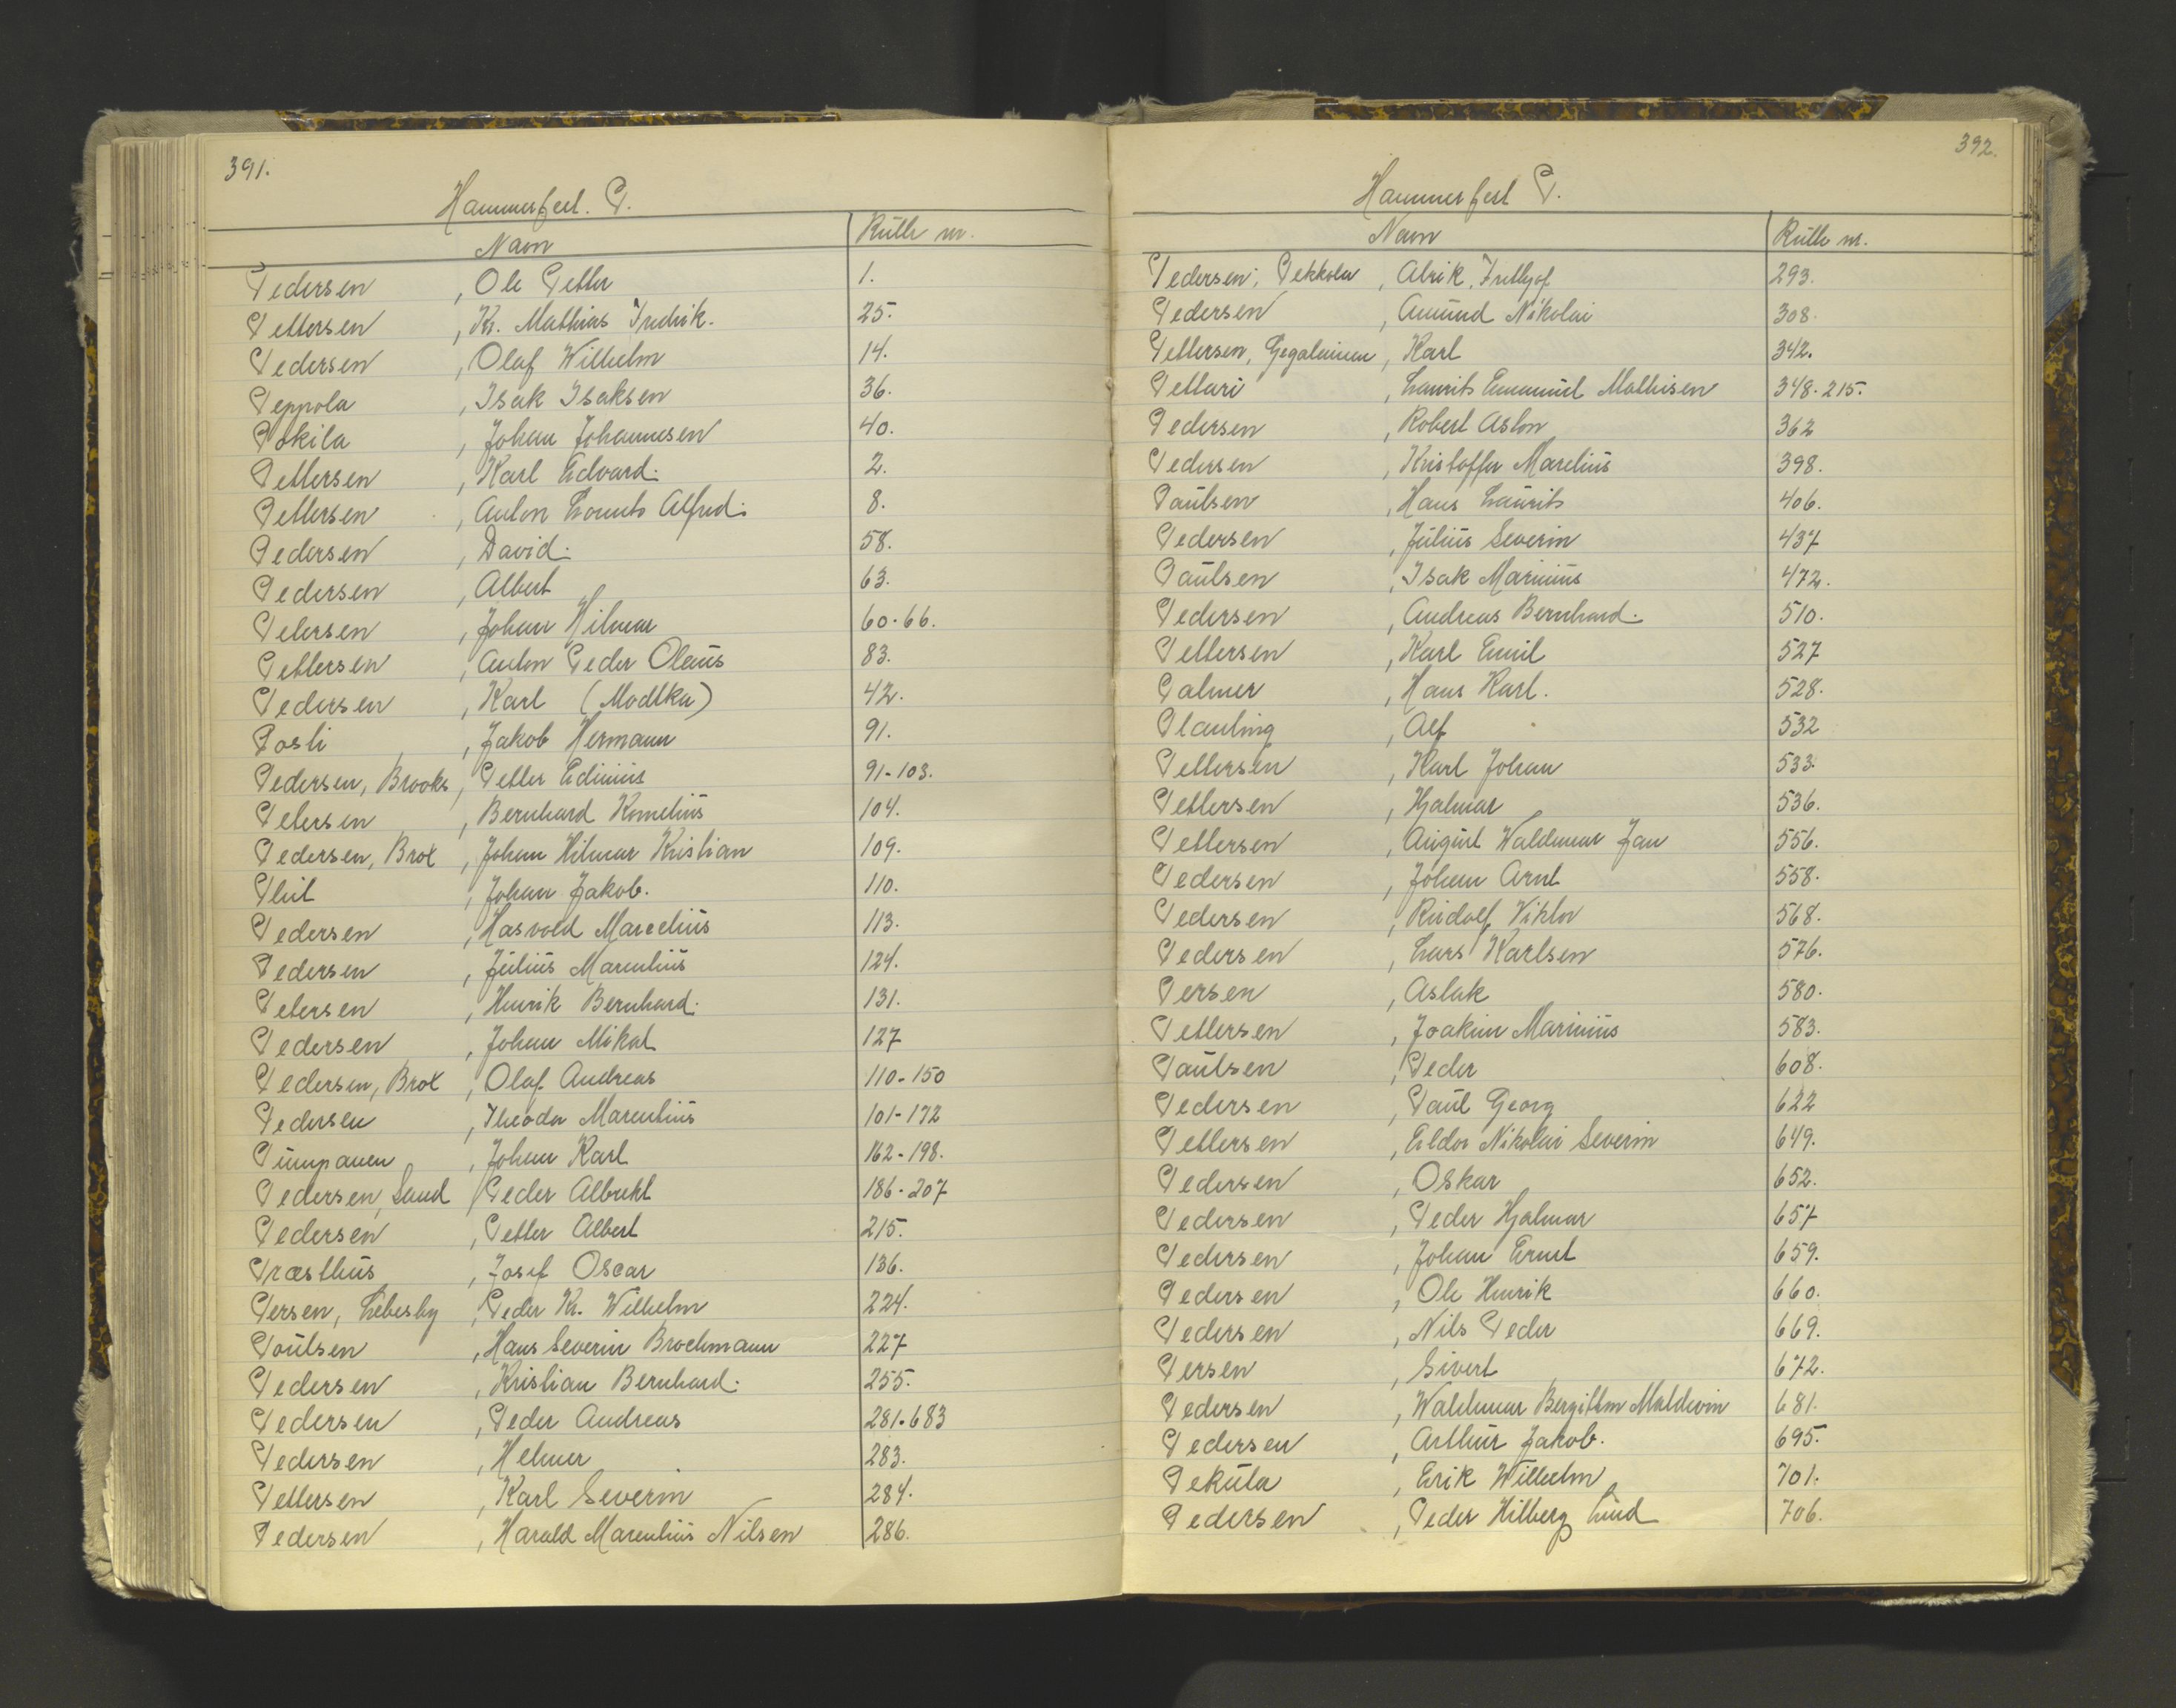 391.
Hammerfest. P.
Navn Rulle nr.
Pedersen, Ole Petter 1.
Pettersen, Kr. Mathias Fredrik. 25.
Pedersen, Olaf Wilhelm 14.
Peppola, Isak Isaksen 36.
Pokila, Johan Johannesen 40.
Pettersen, Karl Edvard. 2.
Pettersen, Anton Lorents Alfred. 8.
Pedersen, David. 58.
Pedersen, Albert 63.
Petersen, Johan Hilmar 60-66.
Pettersen, Anton Peder Olaus 83.
Pedersen, Karl (Modtka) 42.
Posti, Jakob Hermann 91.
Pedersen, Brooks, Petter Edinius 91-103.
Petersen, Bernhard Kornelius 104.
Pedersen, Brox, Johan Hilmar Kristian 109.
Pleil, Johan Jakob. 110.
Pedersen, Hasvold Marcelius 113.
Pedersen, Julius Marentius 124.
Petersen, Henrik Bernhard. 131.
Pedersen, Johan Mikal 127
Pedersen, Brox, Olaf Andreas 110-150
Pedersen, Theodor Marentius 101-172
Pumpanen, Johan Karl 162-198.
Pedersen, Sand, Peder Albrekt 186-207
Pedersen, Petter Albert 215.
Præsthus, Josef Oscar 136.
Persen, Lebesby, Peder Kr. Wilhelm 224.
Poulsen, Hans Severin Brochmann 227
Pedersen, Kristian Bernhard. 255.
Pedersen, Peder Andreas 281-683
Pedersen, Helmer 283.
Pettersen, Karl Severin 284.
Pedersen, Harald Marentius Nilsen 286.
392.
Hammerfest P.
Navn Rulle nr.
Pedersen, Pekkola, Alrik, Fritjof 293.
Pedersen, Amund Nikolai 308.
Pettersen, Karl 342.
Pettari, Laurits Emanuel Mathisen 348-215.
Pedersen, Robert Aslon 362
Pedersen, Kristoffer Marelius 398.
Paulsen, Hans Laurits 406.
Pedersen, Julius Severin 437
Paulsen, Isak Marinius 472.
Pedersen, Andreas Bernhard. 510.
Pettersen, Karl Emil 527
Palmer, Hans Karl. 528.
Planting, Alf 532
Pettersen, Karl Johan 533.
Pettersen, Hjalmar 536.
Pettersen, August Waldemar Jan 556.
Pedersen, Johan Arnt 558.
Pedersen, Rudolf Viktor 568.
Pedersen, Lars Karlsen 576.
Persen, Aslak 580.
Pettersen, Joakim Marinius 583.
Paulsen, Peder 608.
Pedersen, Paul Georg 622
Pettersen, Eldor Nikolai Severin 649.
Pedersen, Oskar 652.
Pedersen, Peder Hjalmar 657
Pedersen, Johan Ernst 659.
Pedersen, Ole Henrik 660.
Pedersen, Nils Peder 669.
Persen, Sivert 672.
Pedersen, Waldemar Maldevin 681.
Pedersen, Arthur Jakob. 695.
Pekula, Erik Wilhelm 701.
Pedersen, Peder Hilberg Lund 706.